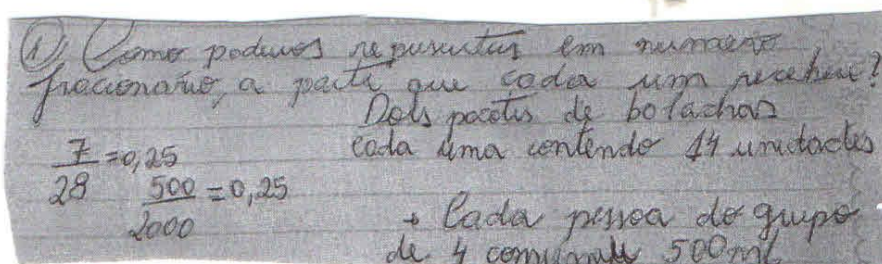 1) Como podemos representar em numero
fracionario, a parte que cada um recebeu?
Dois pacotes de bolachas
cada uma contendo 14 unidades
7/28 = 0,25
500/2000 = 0,25
+ Cada pessoa do grupo
de 4 consumiu 500 ml